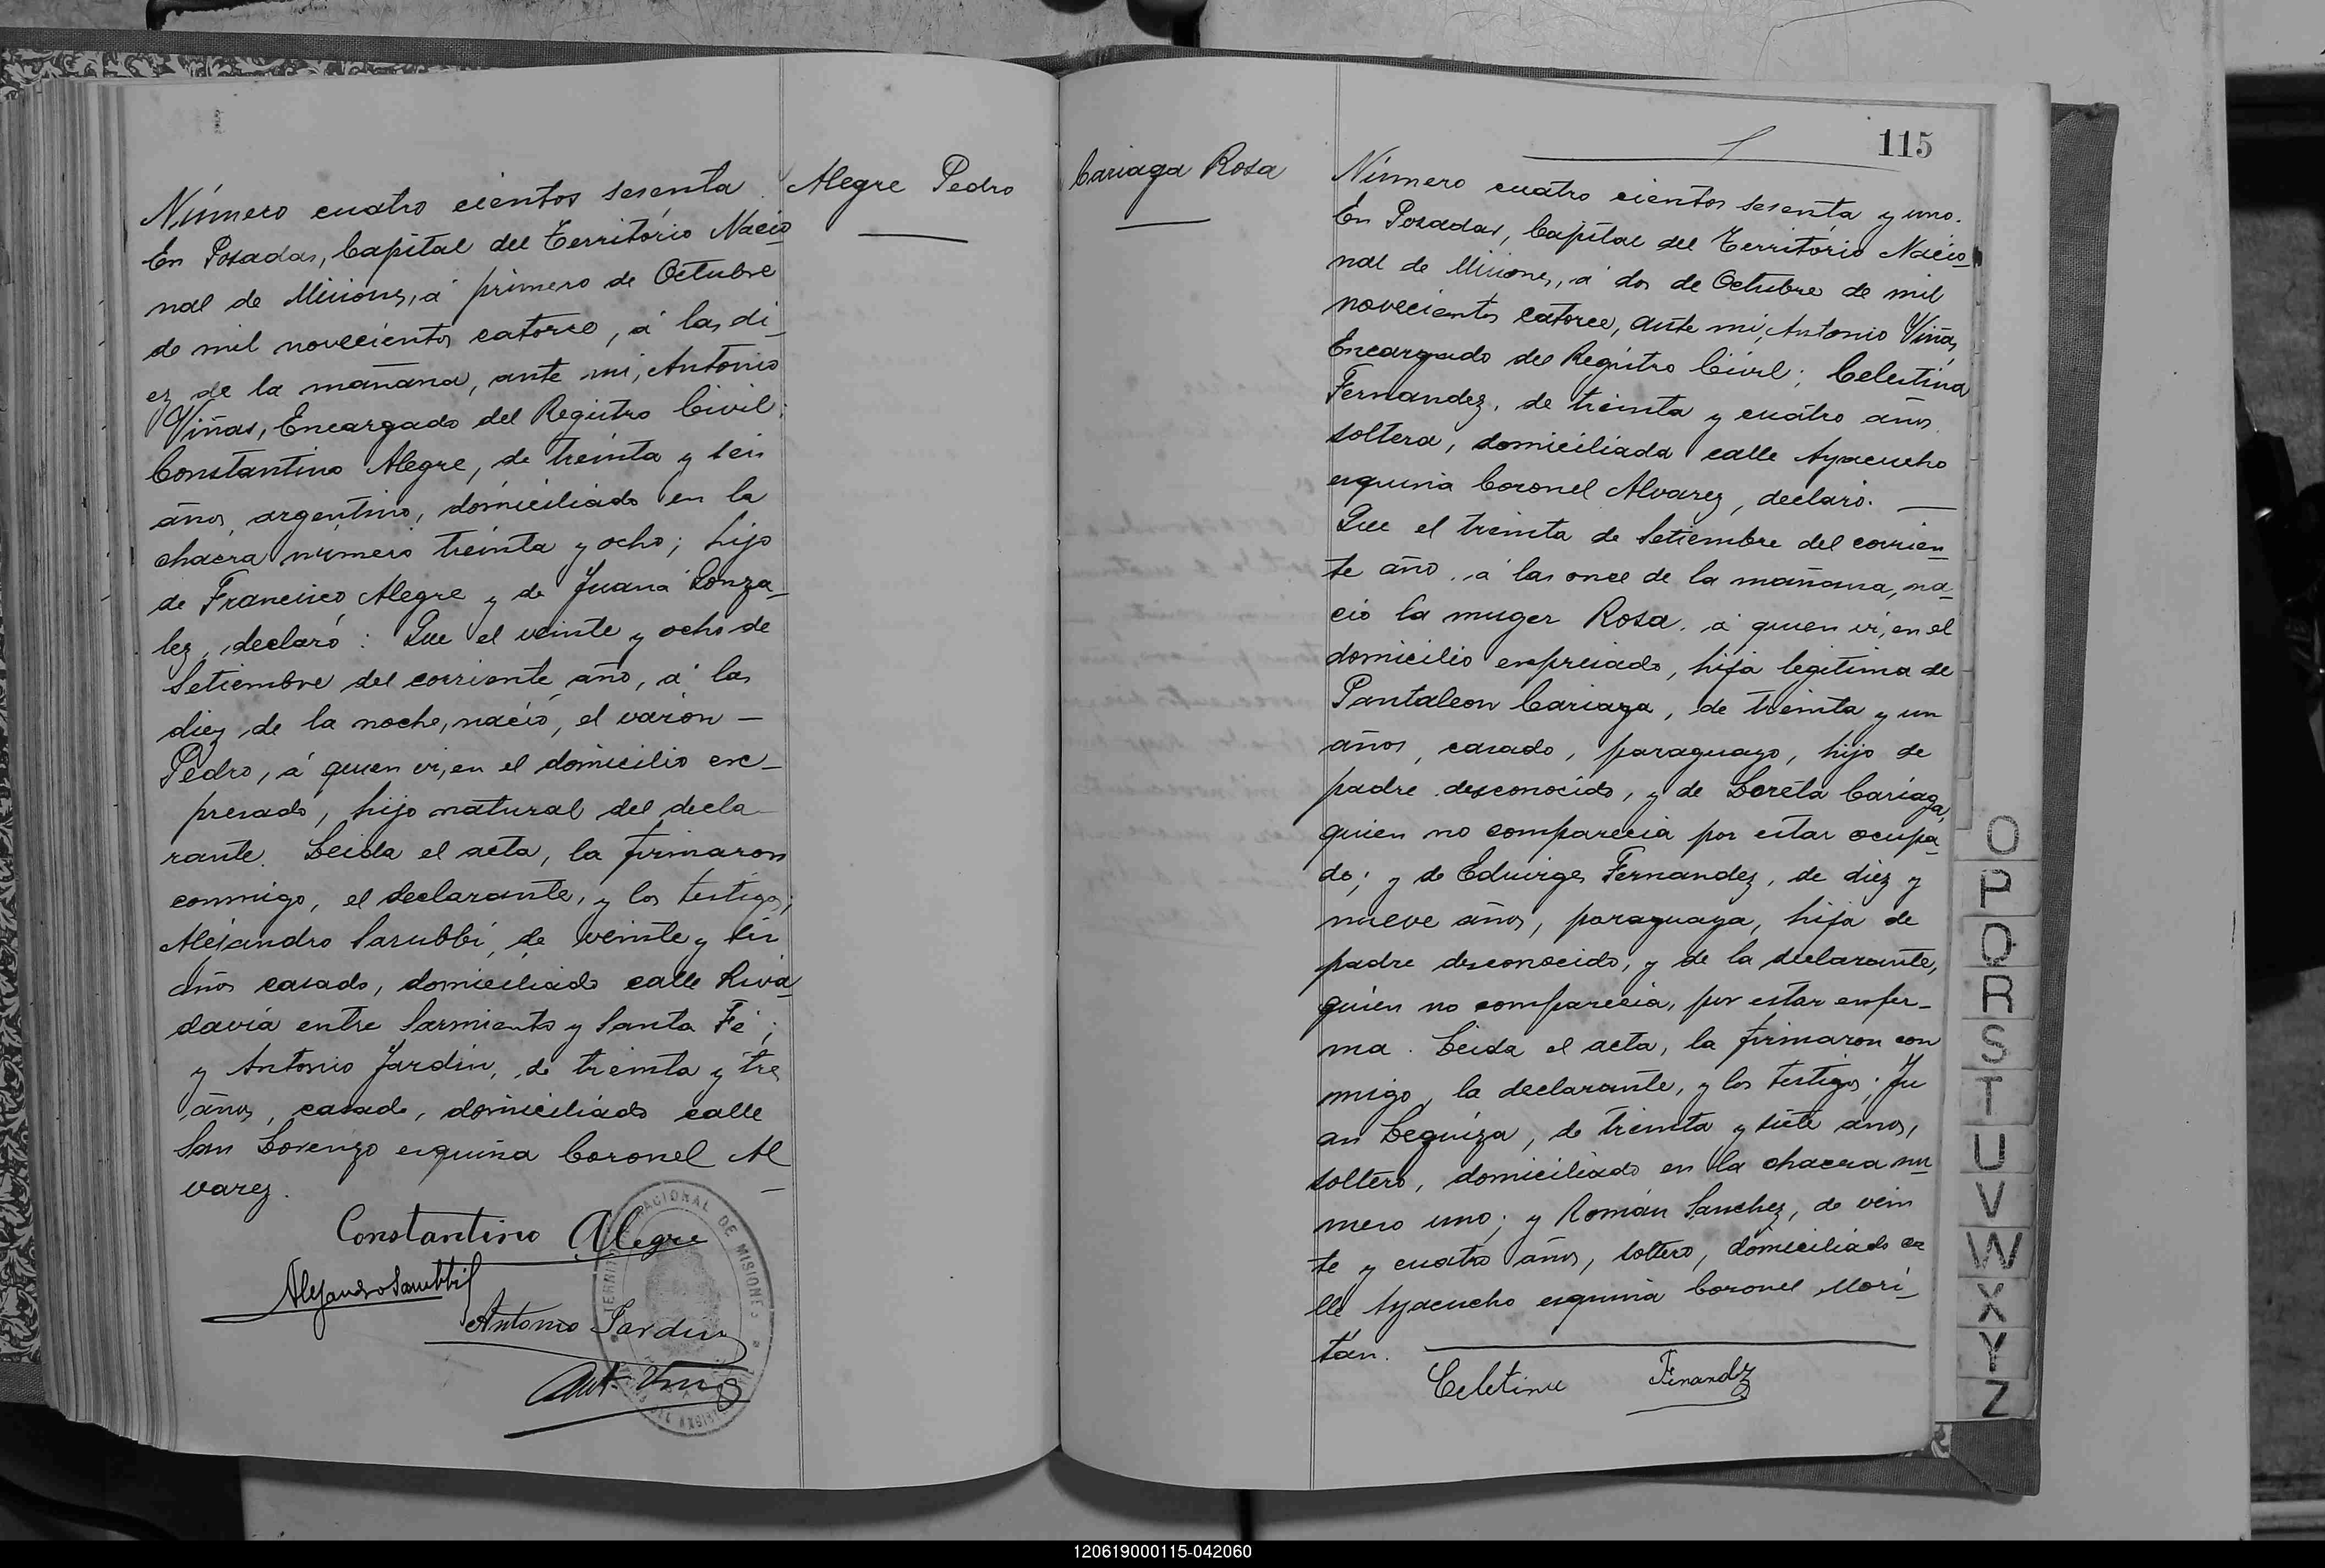 Número cuatro cientos sesenta
Alegre Pedro
En Posadas, Capital del Território Nacio
nal de Misiones, á primero de Octubre
de mil novecientos catorce, á las di_
ez de la mañana, ante mi, Antonio
Viñas, Encargado del Registro Civil:
Constantino Alegre, de treinta y seis
años, argentino, domiciliado en la
chacra número treinta y ocho; hijo
de Francisco Alegre y de Juana Gonza_
lez, declaró: Que el veinte y ocho de
Setiembre del corriente año, á las
diez de la noche, nació, el varón —
Pedro, á quien vi, en el domicilio exc_
presado, hijo natural del decla_
rante. Leida el acta, la firmaron
conmigo, el declarante, y los testigos;
Alejandro Sarubbi, de veinte y seis
años casado, domiciliado calle Riva_
davia entre Sarmiento y Santa Fé;
y Antonio Jardin, de treinta y tres
años, casado, domiciliado calle
San Lorenzo esquina Coronel Al_
varez.
Constantino Alegre
Alejandro Sarubbi
Antonio Jardin
Ant. Viñas
TERRITORIO NACIONAL DE MISIONES
115
Cariaga Rosa
Número cuatro cientos sesenta y uno.
En Posadas, Capital del Território Nacio_
nal de Misiones, á dos de Octubre de mil
novecientos catorce, ante mi, Antonio Viñas,
Encargado del Registro Civil; Celestina
Fernandez, de treinta y cuatro años
soltera, domiciliada calle Ayacucho
esquina Coronel Alvarez, declaró. —
Que el treinta de Setiembre del corrien_
te año, á las once de la mañana, na_
ció la muger Rosa, á quien vi, en el
domicilio expresado, hija legitima de
Pantaleon Cariaga, de treinta y un
años, casado, paraguayo, hijo de
padre desconocido, y de Loreta Cariaga,
quien no comparecia por estar ocupa_
do; y de Eduirges Fernandez, de diez y
nueve años, paraguaya, hija de
padre desconocido, y de la declarante,
quien no comparecia, por estar enfer_
ma. Leida el acta, la firmaron con
migo, la declarante, y los testigos; Ju
an Leguiza, de treinta y siete anos,
soltero, domiciliado en la chacra nu_
mero uno; y Román Sanchez, de vein
te y cuatro años, soltero, domiciliado ca
lle Ayacucho esquina Coronel Mori_
tán.
Celetina Finandz
O
P
Q
R
S
T
U
V
W
X
Y
Z
120619000115-042060